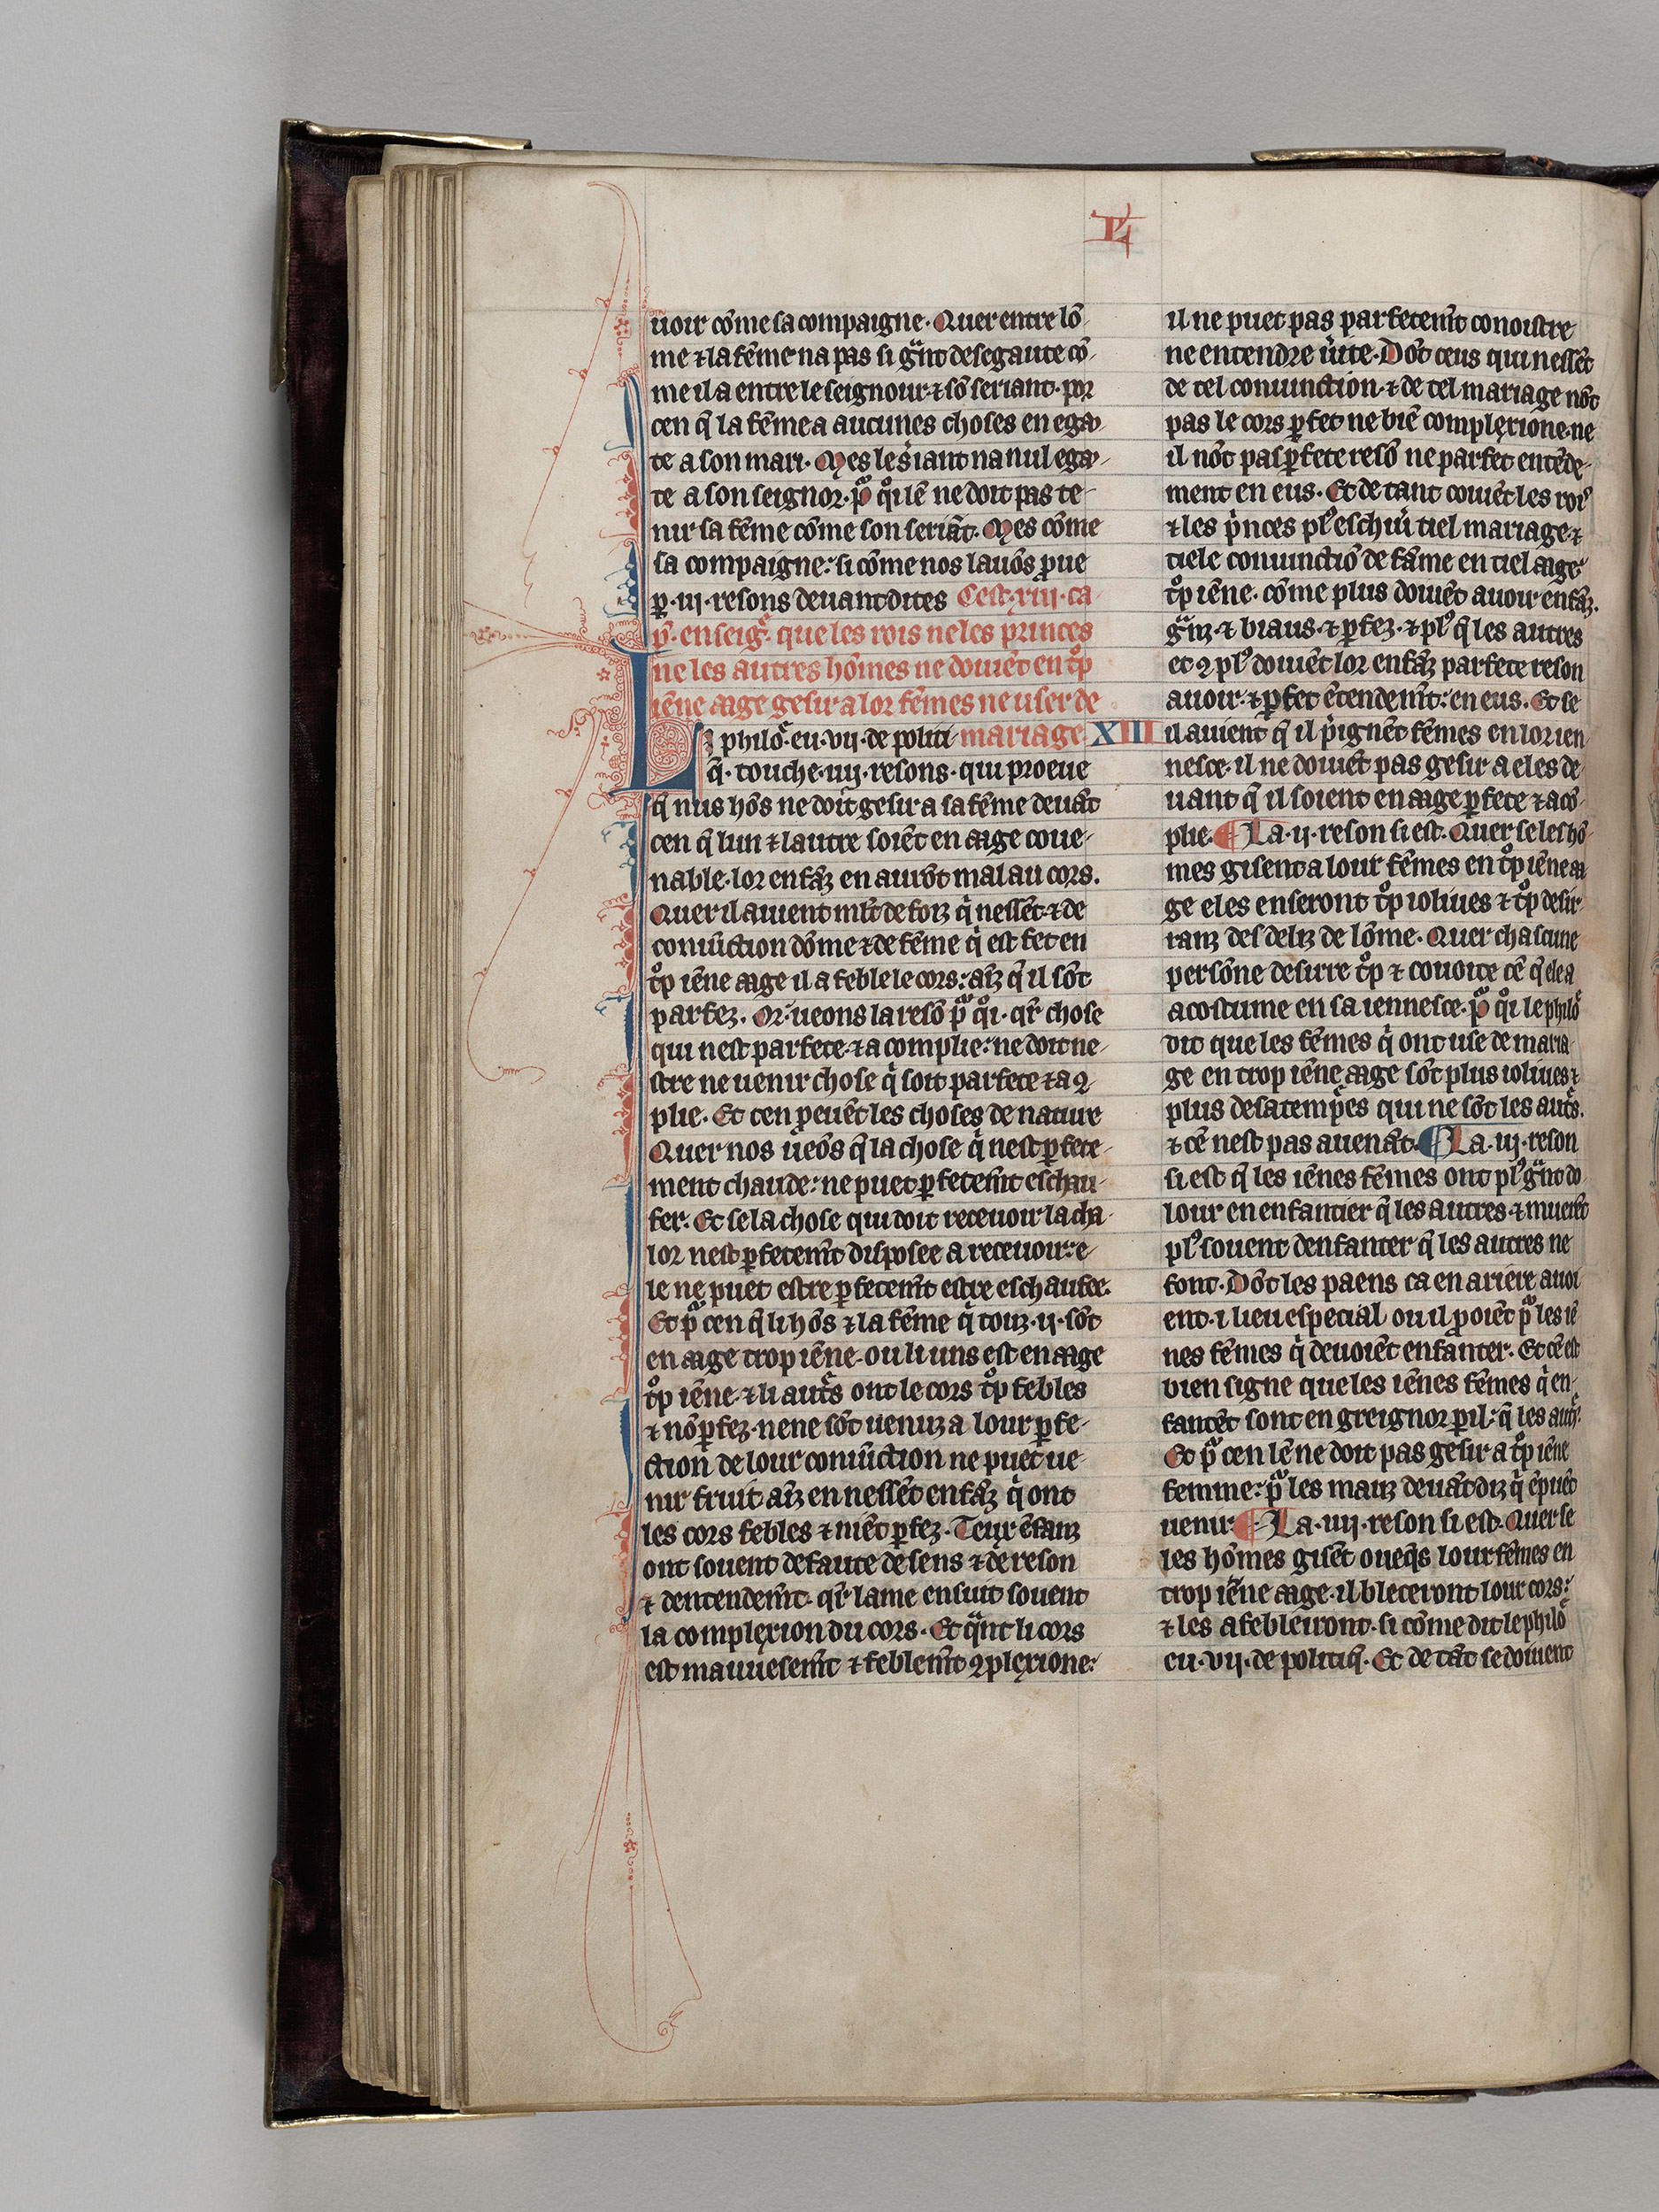 L
uoir cōme sa compaigne. Quer entre lō-
me ⁊ la fēme na pas si gͣnt desegaute cō-
me il a entre le seignour ⁊ sō seriant. por
cen q̄ la fēme a aucunes choses en ega-
te a son mari. Mes le siant na nul ega-
te a son seignor. pͣ qͦi lē ne doit pas te-
nir sa fēme cōme son seriāt. Mes cōme
sa compaigne: si cōme nos lauōs ꝓue
ꝑ .iij. resons deuant dites Cest .xiij. ca-
pͬ. enseigͤ. que les rois ne les princes
ne les autres hōmes ne doiuēt en tͦp
iēne aage gesir a lor fēmes ne user de
Lı philōͤ. eu .vij. de politi mariage XIII
q̄. touche .iiij. resons. qui proeue
q̄ nus hōs ne doit gesir a sa fēme deuāt
cen q̄ lun ⁊ lautre soiēt en aage coue-
nable. lor enfāz en aurōt mal au cors.
Quer il auient mlt̄ de foiz qͥ nessēt ⁊ de
coniūction dōme ⁊ de fēme qͥ est fet en
tͦp iēne aage il a feble le cors: aīz q̄ il sōt
parfez. Or ueons la resō pͣ qͦi. qͬ chose
qui nest parfete ⁊ acomplie: ne doit ne-
stre ne uenir chose qͥ soit parfete ⁊ aꝯ-
plie. Et cen peuēt les choses de nature
Quer nos ueōs q̄ la chose qͥ nest ꝑfete-
ment chaude: ne puet ꝑfetem̄t eschau-
fer. Et se la chose qui doit receuoir la cha-
lor nest ꝑfetem̄t disposee a receuoir: e-
le ne puet estre ꝑfetem̄t estre eschaufee.
Et pͣ cen q̄ li hōs ⁊ la fēme qͥ touz .ij. sōt
en aage trop iēne. ou li uns est en aage
tͦp iēne. ⁊ li autͤs ont le cors tͦp febles
⁊ nō ꝑfez. ne ne sōt uenuz a lour ꝑfe-
ction de lour coniūction ne puet ue-
nir fruit aīz en nessēt enfāz qͥ ont
les cors febles ⁊ niēt ꝑfez. Teux ēfanz
ont souent defaute de sens ⁊ de reson
⁊ dentendem̄t. qͬ lame ensuit souent
la complexion du cors. Et qͣnt li cors
est mauuesem̄t ⁊ feblem̄t ꝯplexione:
il ne puet pas parfetem̄t conoistre
ne entendre uͥte. Dōt ceus qui nessēt
de tel coniunction. ⁊ de tel mariage nōt
pas le cors ꝑfet ne biē complexione. ne
il nōt pas ꝑfete resō ne parfet entēde-
ment en eus. Et de tant couiēt les rois
⁊ les pͥnces plꝰ eschiuͬ tiel mariage. ⁊
tiele coniunctiō de fāme en tiel aage
tͦp iēne. cōme plus doiuēt auoir enfāz.
gͣnz. ⁊ biaus. ⁊ ꝑfez. ⁊ plꝰ q̄ les autres
et ꝯ plꝰ doiuēt lor enfāz parfete reson
auoir. ⁊ ꝑfet ētendem̄t: en eus. Et se
il auient q̄ il pͥignēt fēmes en lor ien-
nesce. il ne doiuēt pas gesir a eles de-
uant q̄ il soient en aage ꝑfete ⁊ acō-
plie. ¶ La .ij. reson si est. Quer se les hō-
mes gisent a lour fēmes en tͦp iēne aa-
ge eles en seront tͦp ioliues ⁊ tͦp desir-
ranz des deliz de lōme. Quer chascune
persōne desirre tͦp ⁊ couoite cē q̄ ele a
acostume en sa iennesce. pͣ qͦi le philōͤ
dit que les fēmes qͥ ont use de maria-
ge en trop iēne aage sōt plus ioliues ⁊
plus desatempͤes qui ne sōt les autͤs.
⁊ cē nest pas auenāt. ¶ La .iij. reson
si est q̄ les iēnes fēmes ont plꝰ gͣnt do-
lour en enfantier q̄ les autres. ⁊ muerēt
plꝰ souent denfanter q̄ les autres ne
font. Dōt les paens ca en ariere auoi-
ent .i. lieu especial ou il ꝓoiēt pͣ les iē-
nes fēmes qͥ deuoiēt enfanter. Et cē est
bien signe que les iēnes fēmes qͥ en-
fantēt sont en greignor ꝑil: q̄ les autͤs.
Et pͣ cen lē ne doit pas gesir a tͦp iēne
femme: pͣ les maus deuāt diz qͥ ē puēt
uenir. ¶ La .iiij. reson si est. Quer se
les hōmes gisēt oueq̄s lour fēmes en
trop iēne aage. il bleceront lour cors:
⁊ les afebleiront. si cōme dit le philōͤ
eu .vij. de politiq̄. Et de tāt se doiuent